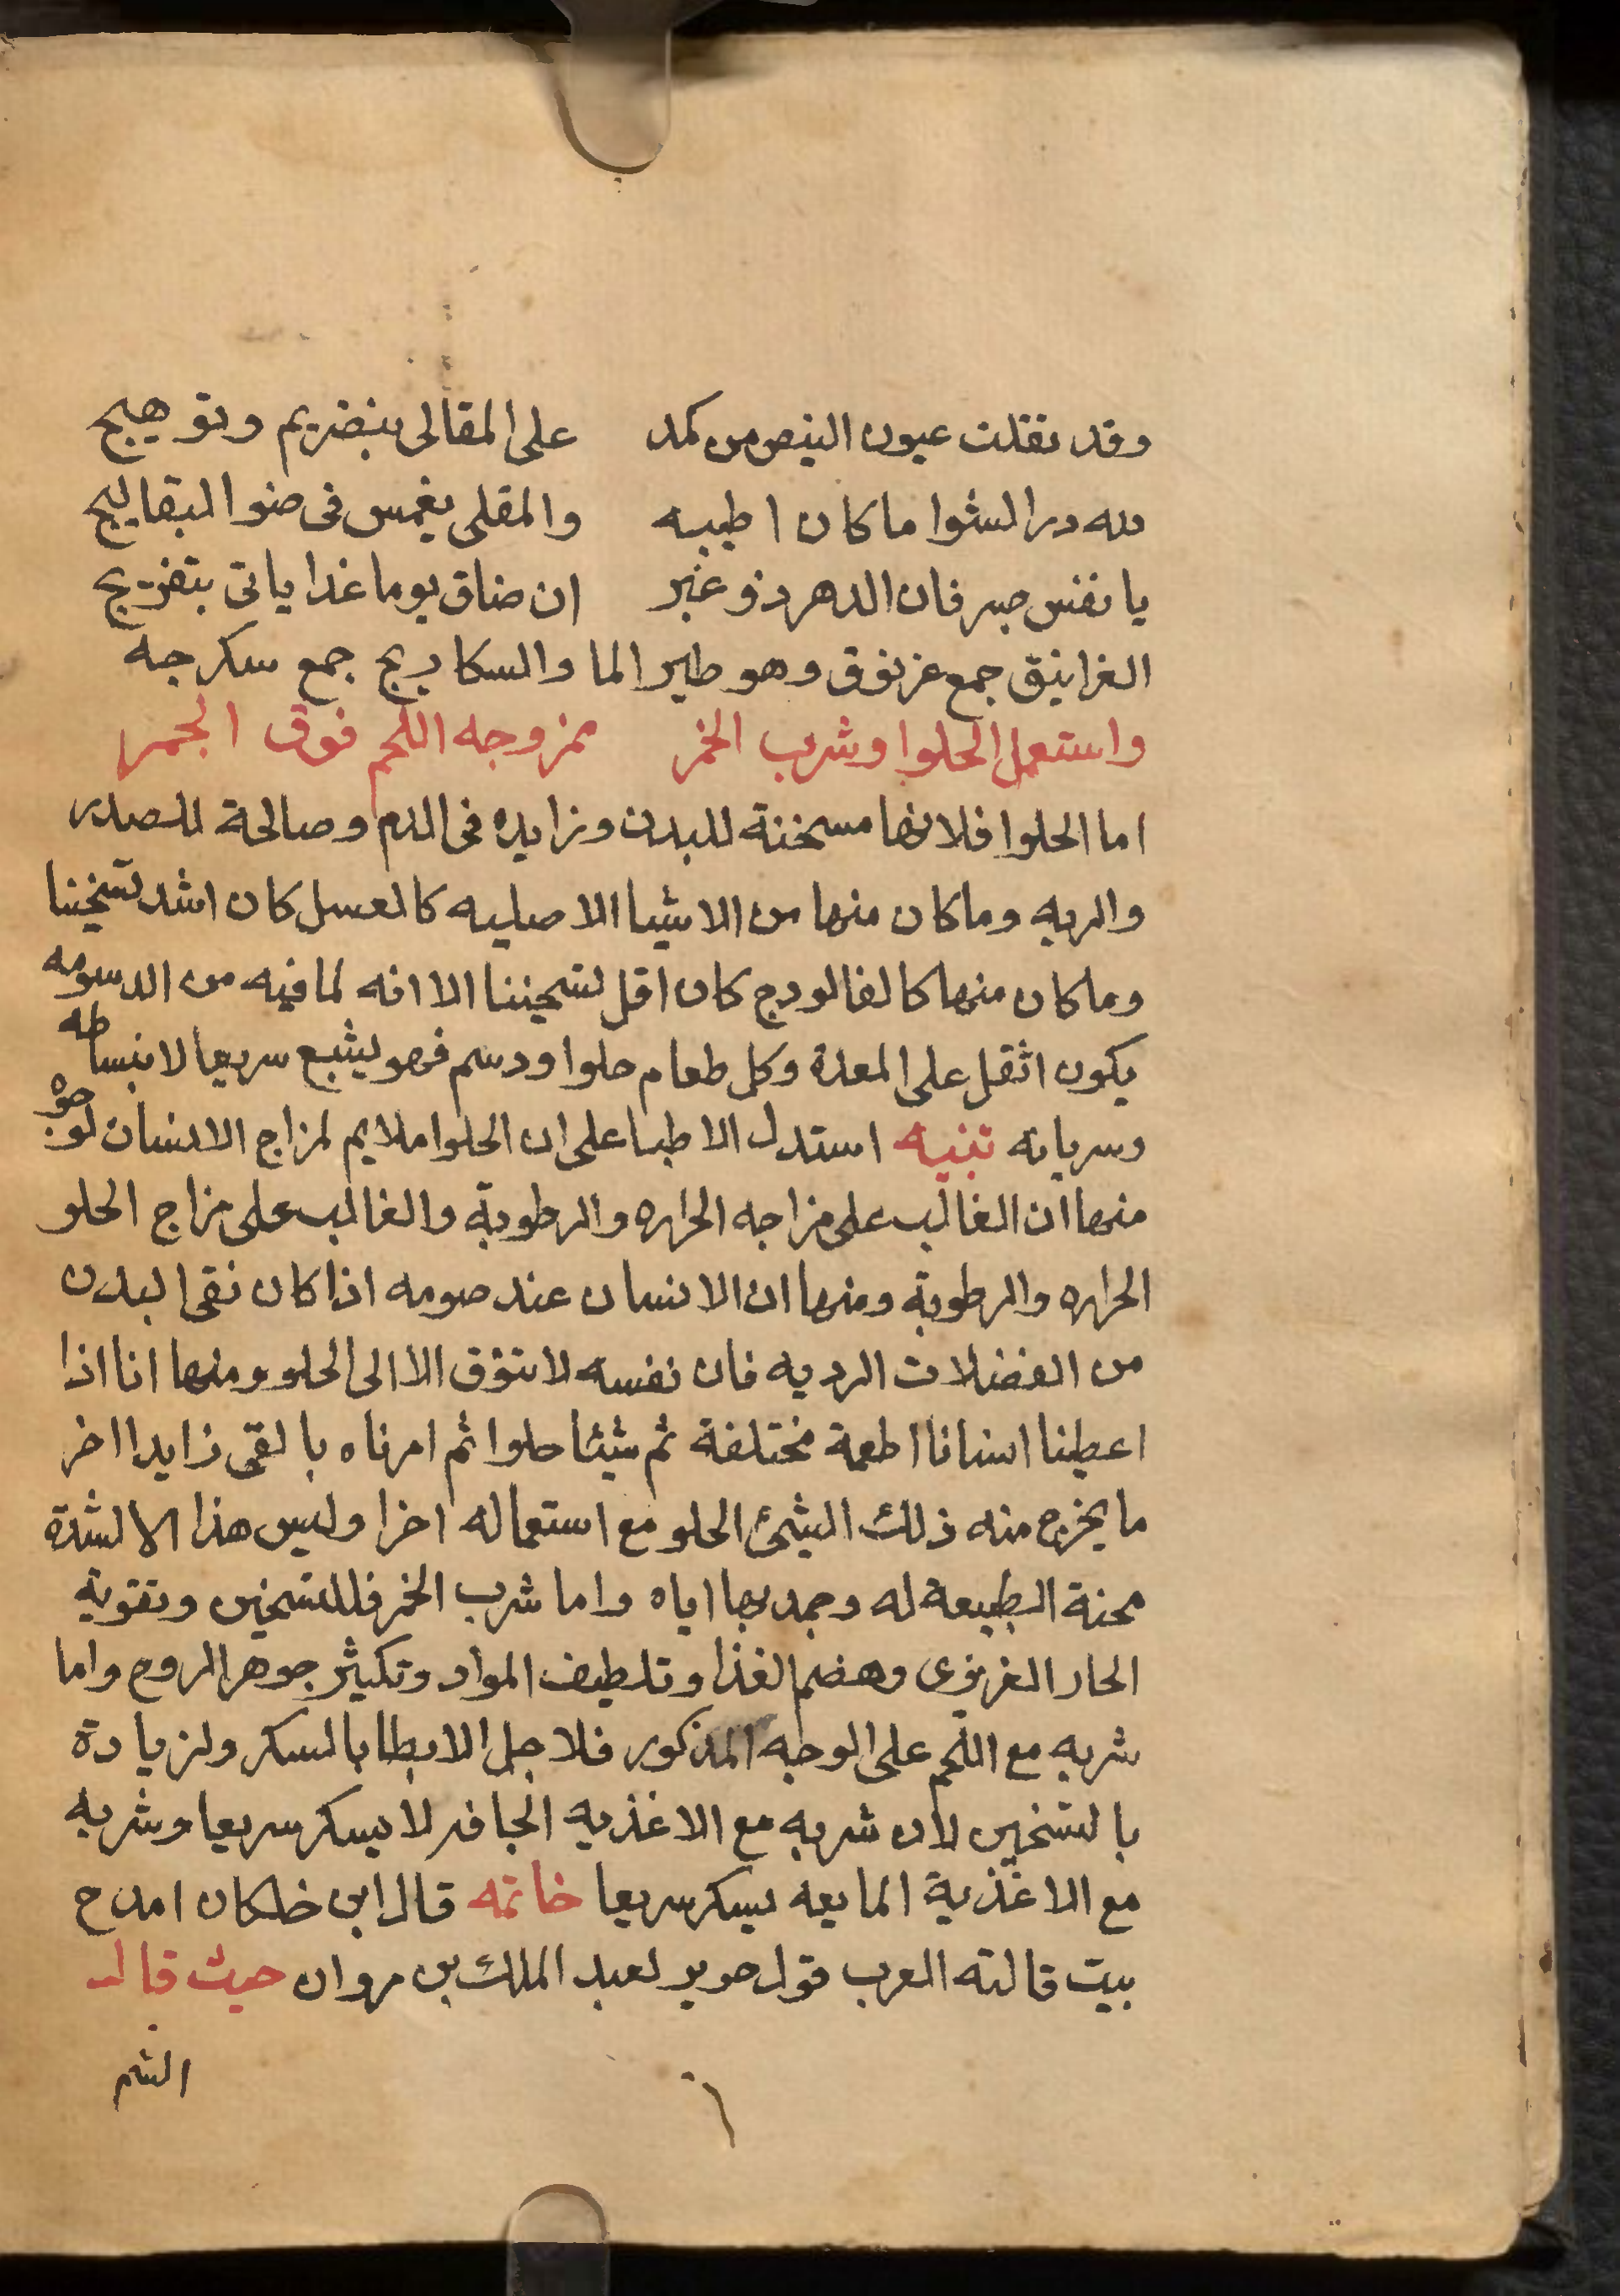 وقد تقلت عيون البيض من كمد على المقالى بتضريم وتوهيج
لله در الشوا ما كان اطيبه والمقلى يغمس فى صنو البقاليج
يا نفس صبر فان الدهر ذو غير ان ضاق يوما غدا ياتى بتفريج
الغرانيق جمع غرنوق وهو طير الما والسكاريج جمع سكرجه
واستعمل الحلوا وشرب الخمر ممزوجه اللحم فوق الجمر
اما الحلوا فلانها مسخنة للبدن وزايده فى الدم وصالحة للصدر
والريه وما كان منها من الاشيا الاصليه كالعسل كان اشد تسخينا
وما كان منها كالفالودج كان اقل تسخيننا الا انه لما فيه من الدسومه
يكون اثقل على المعدة وكل طعام حلوا ودسم فهو يشبع سريعا لانبساطه
وسريانه تنبيه استدل الاطبا على ان الحلوا ملايم لمزاج الانسان لوجوه
منها ان الغالب على مزاجه الحراره والرطوبة والغالب على مزاج الحلو
الحراره والرطوبة ومنها ان الانسان عند صومه اذا كان نقى البدن
من الفضلات الرديه فان نفسه لا تتوق الا الى الحلو ومنها انا اذا
اعطينا انسانا اطعمة مختلفة ثم شيئا حلوا ثم امرناه بالقى زايدا اخر
ما يخرج منه ذلك الشئ الحلو مع استعماله اخرا وليس هذا الا لشدة
محنة الطبيعة له وجمد بها اياه واما شرب الخمر فللتسخين وتقوية
الحار الغريزى وهضم الغذا وتلطيف المواد وتكثير جوهر الروح واما
شربه مع اللحم على الوجه المذكور فلاجل الابطا بالسكر ولزيادة
بالتسخين لان شربه مع الاغذيه الجافه لا يسكر سريعا وشربه
مع الاغذية المايعه يسكر سريعا خاتمه قال ابن خلكان امدح
بيت قالته العرب قول جرير لعبد الملك بن مروان حيث قال
الستم
٦